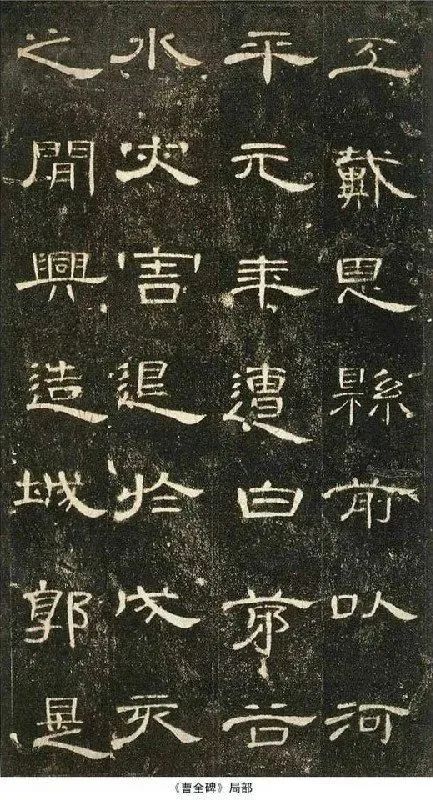 工戴恩縣前以河
平元年遭白茅谷
水災害退於戌亥
之閒興造城郭是
《曹全碑》局部